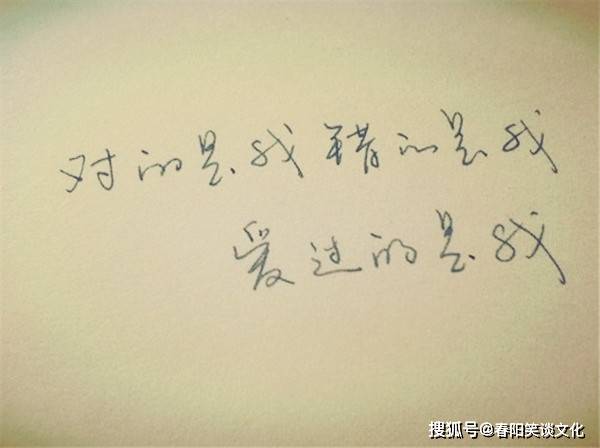 对的是我错的是我
爱过的是我
搜狐号@春阳笑谈文化